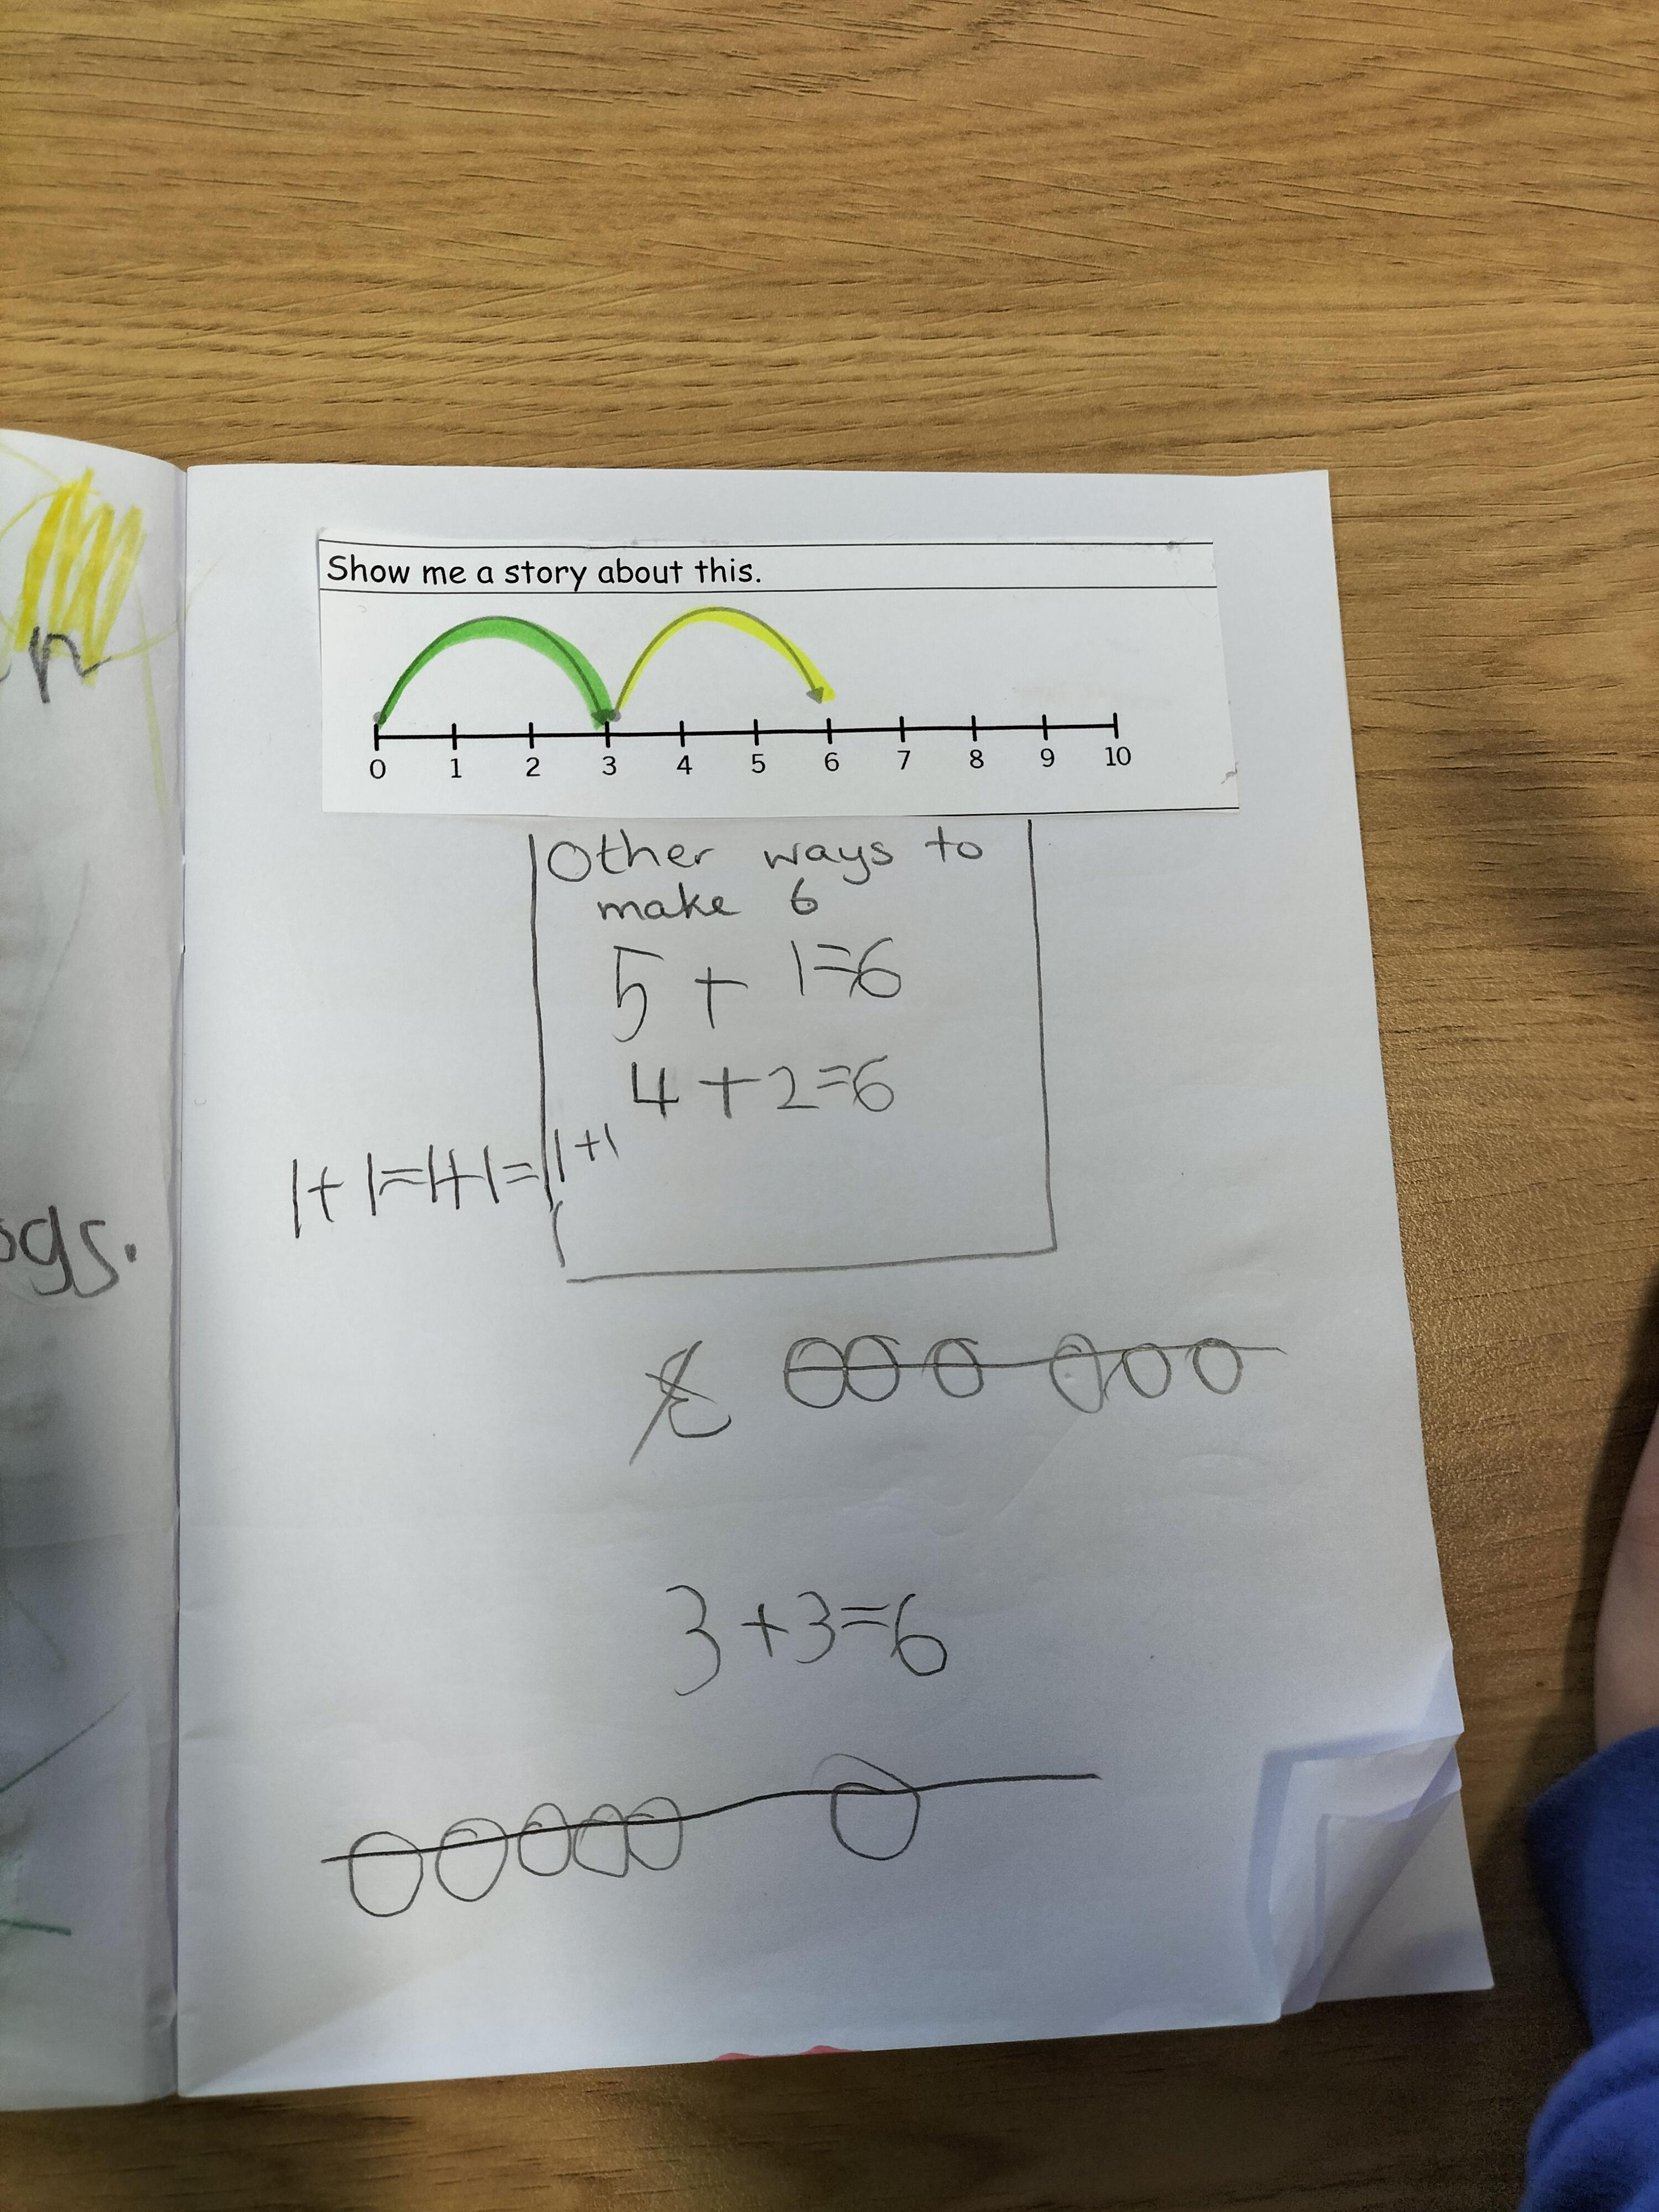 Show me a story about this.
0 1 2 3 4 5 6 7 8 9 10
Other ways to
make 6
5 + 1=6
4+2=6
1+1=1+1=1+1
3+3=6
ogs.